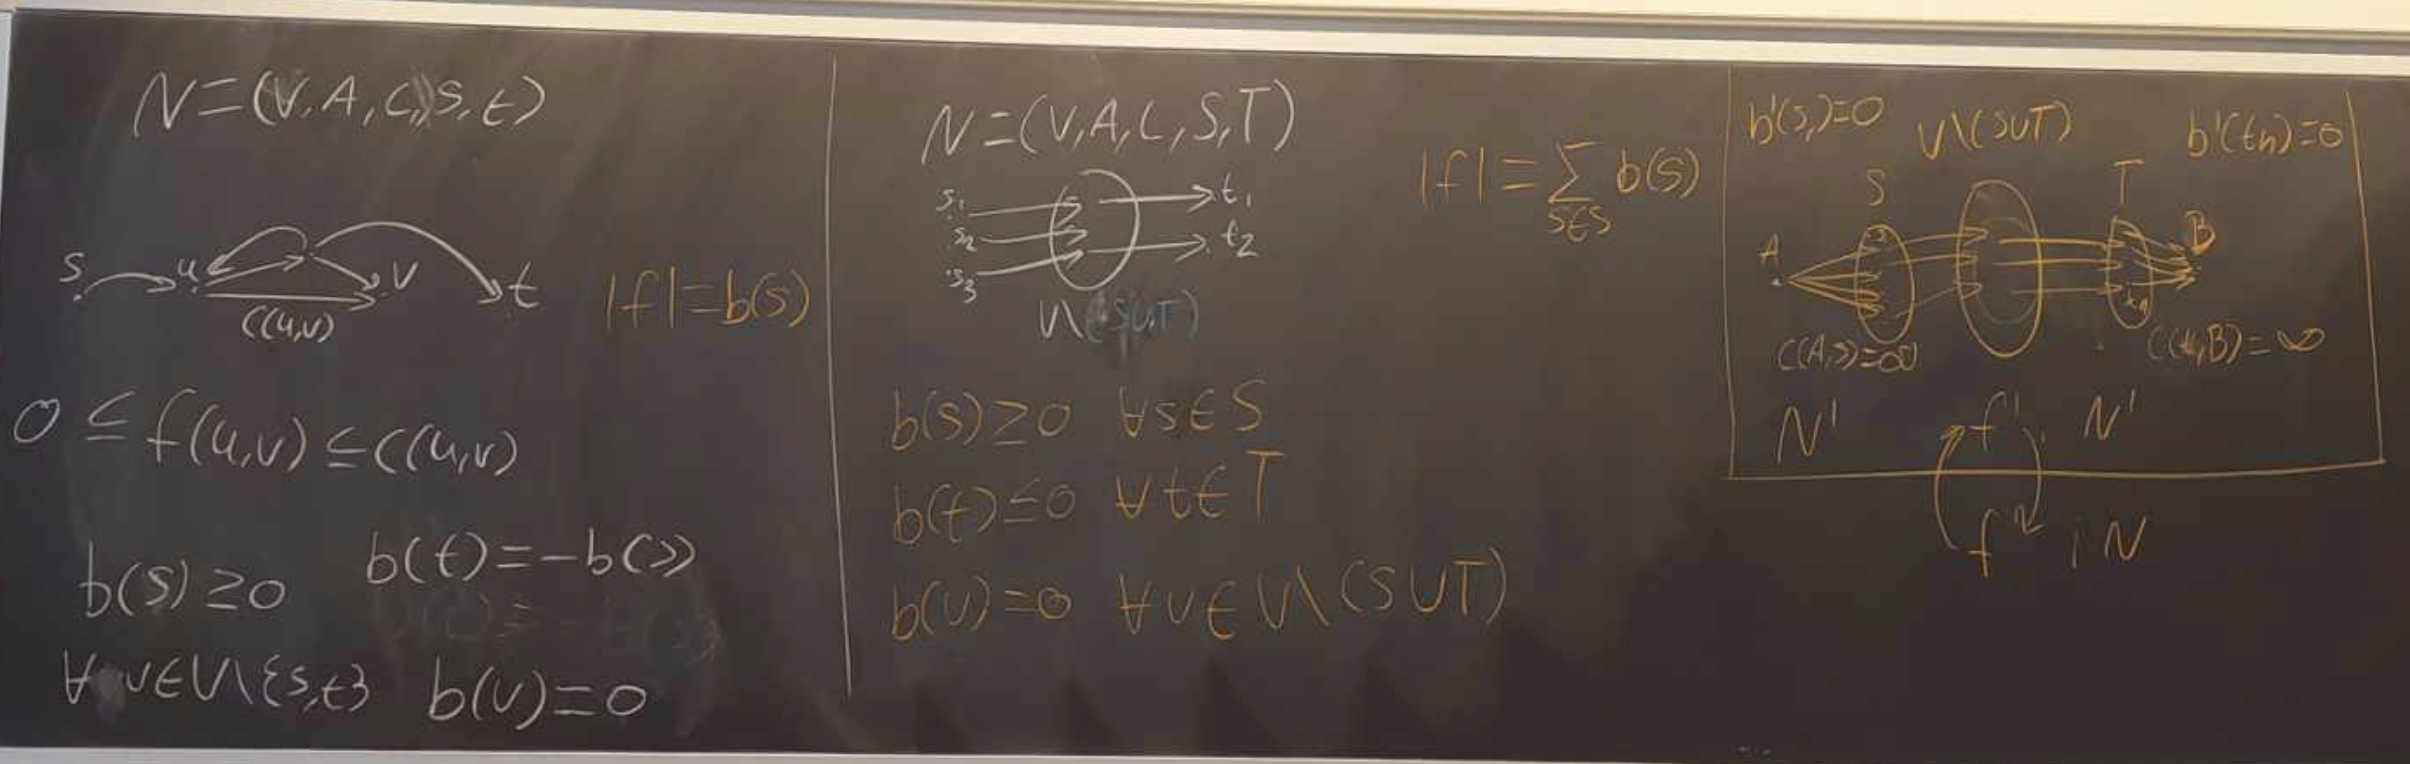 N=(V,A,C,s,t)
s u v t
C(u,v)
|f|=b(s)
0≤f(u,v)≤C(u,v)
b(s)≥0 b(t)=-b(s)
∀v∈V\{s,t} b(v)=0
N=(V,A,C,S,T)
s₁ t₁
s₂ t₂
s₃
V\(S∪T)
|f|=∑ b(s)
s∈S
b(s)≥0 ∀s∈S
b(t)≤0 ∀t∈T
b(v)=0 ∀v∈V\(S∪T)
b'(s₁)=0 V\(S∪T) b'(tₙ)=0
S T
A B
C(A,s)=∞ C(t,B)=∞
N' f' i N'
f i N